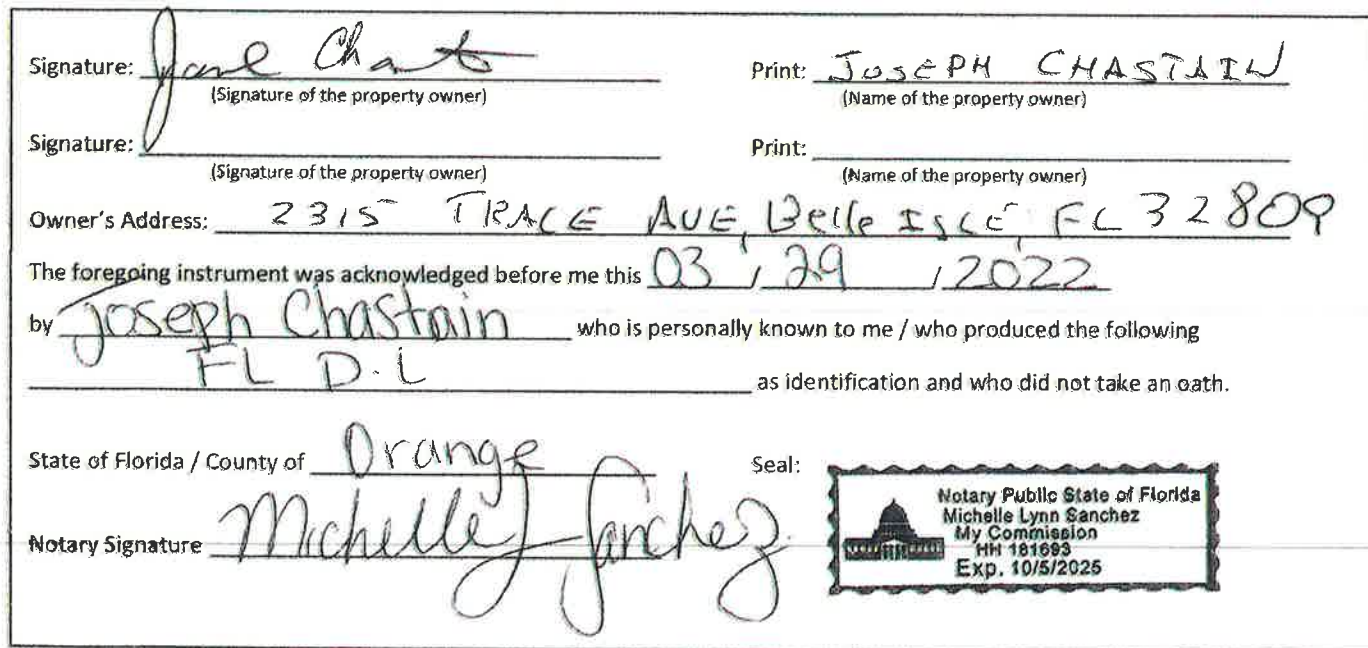 Signature: Print: JOSEPH CHASTAIN
(Signature of the property owner) (Name of the property owner)
Signature: Print:
(Signature of the property owner) (Name of the property owner)
Owner's Address: 2315 TRACE AVE, Belle ISLE, FL 32809
The foregoing instrument was acknowledged before me this 03 / 29 / 2022
by Joseph Chastain who is personally known to me / who produced the following
FL D.L as identification and who did not take an oath.
State of Florida / County of Orange Seal:
Notary Signature Michelle L Sanchez
Notary Public State of Florida
Michelle Lynn Sanchez
My Commission
HH 181693
Exp. 10/5/2025